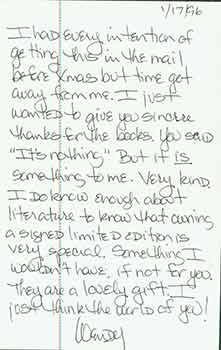 1/17/96
I had every intention of
getting this in the mail
before Xmas but time got
away from me. I just
wanted to give you sincere
thanks for the books. You said
"It's nothing" But it is
something to me. Very kind.
I do know enough about
literature to know that owning
a signed limited edition is
very special. Something I
wouldn't have, if not for you.
They are a lovely gift. I
just think the world of you!
Wendy